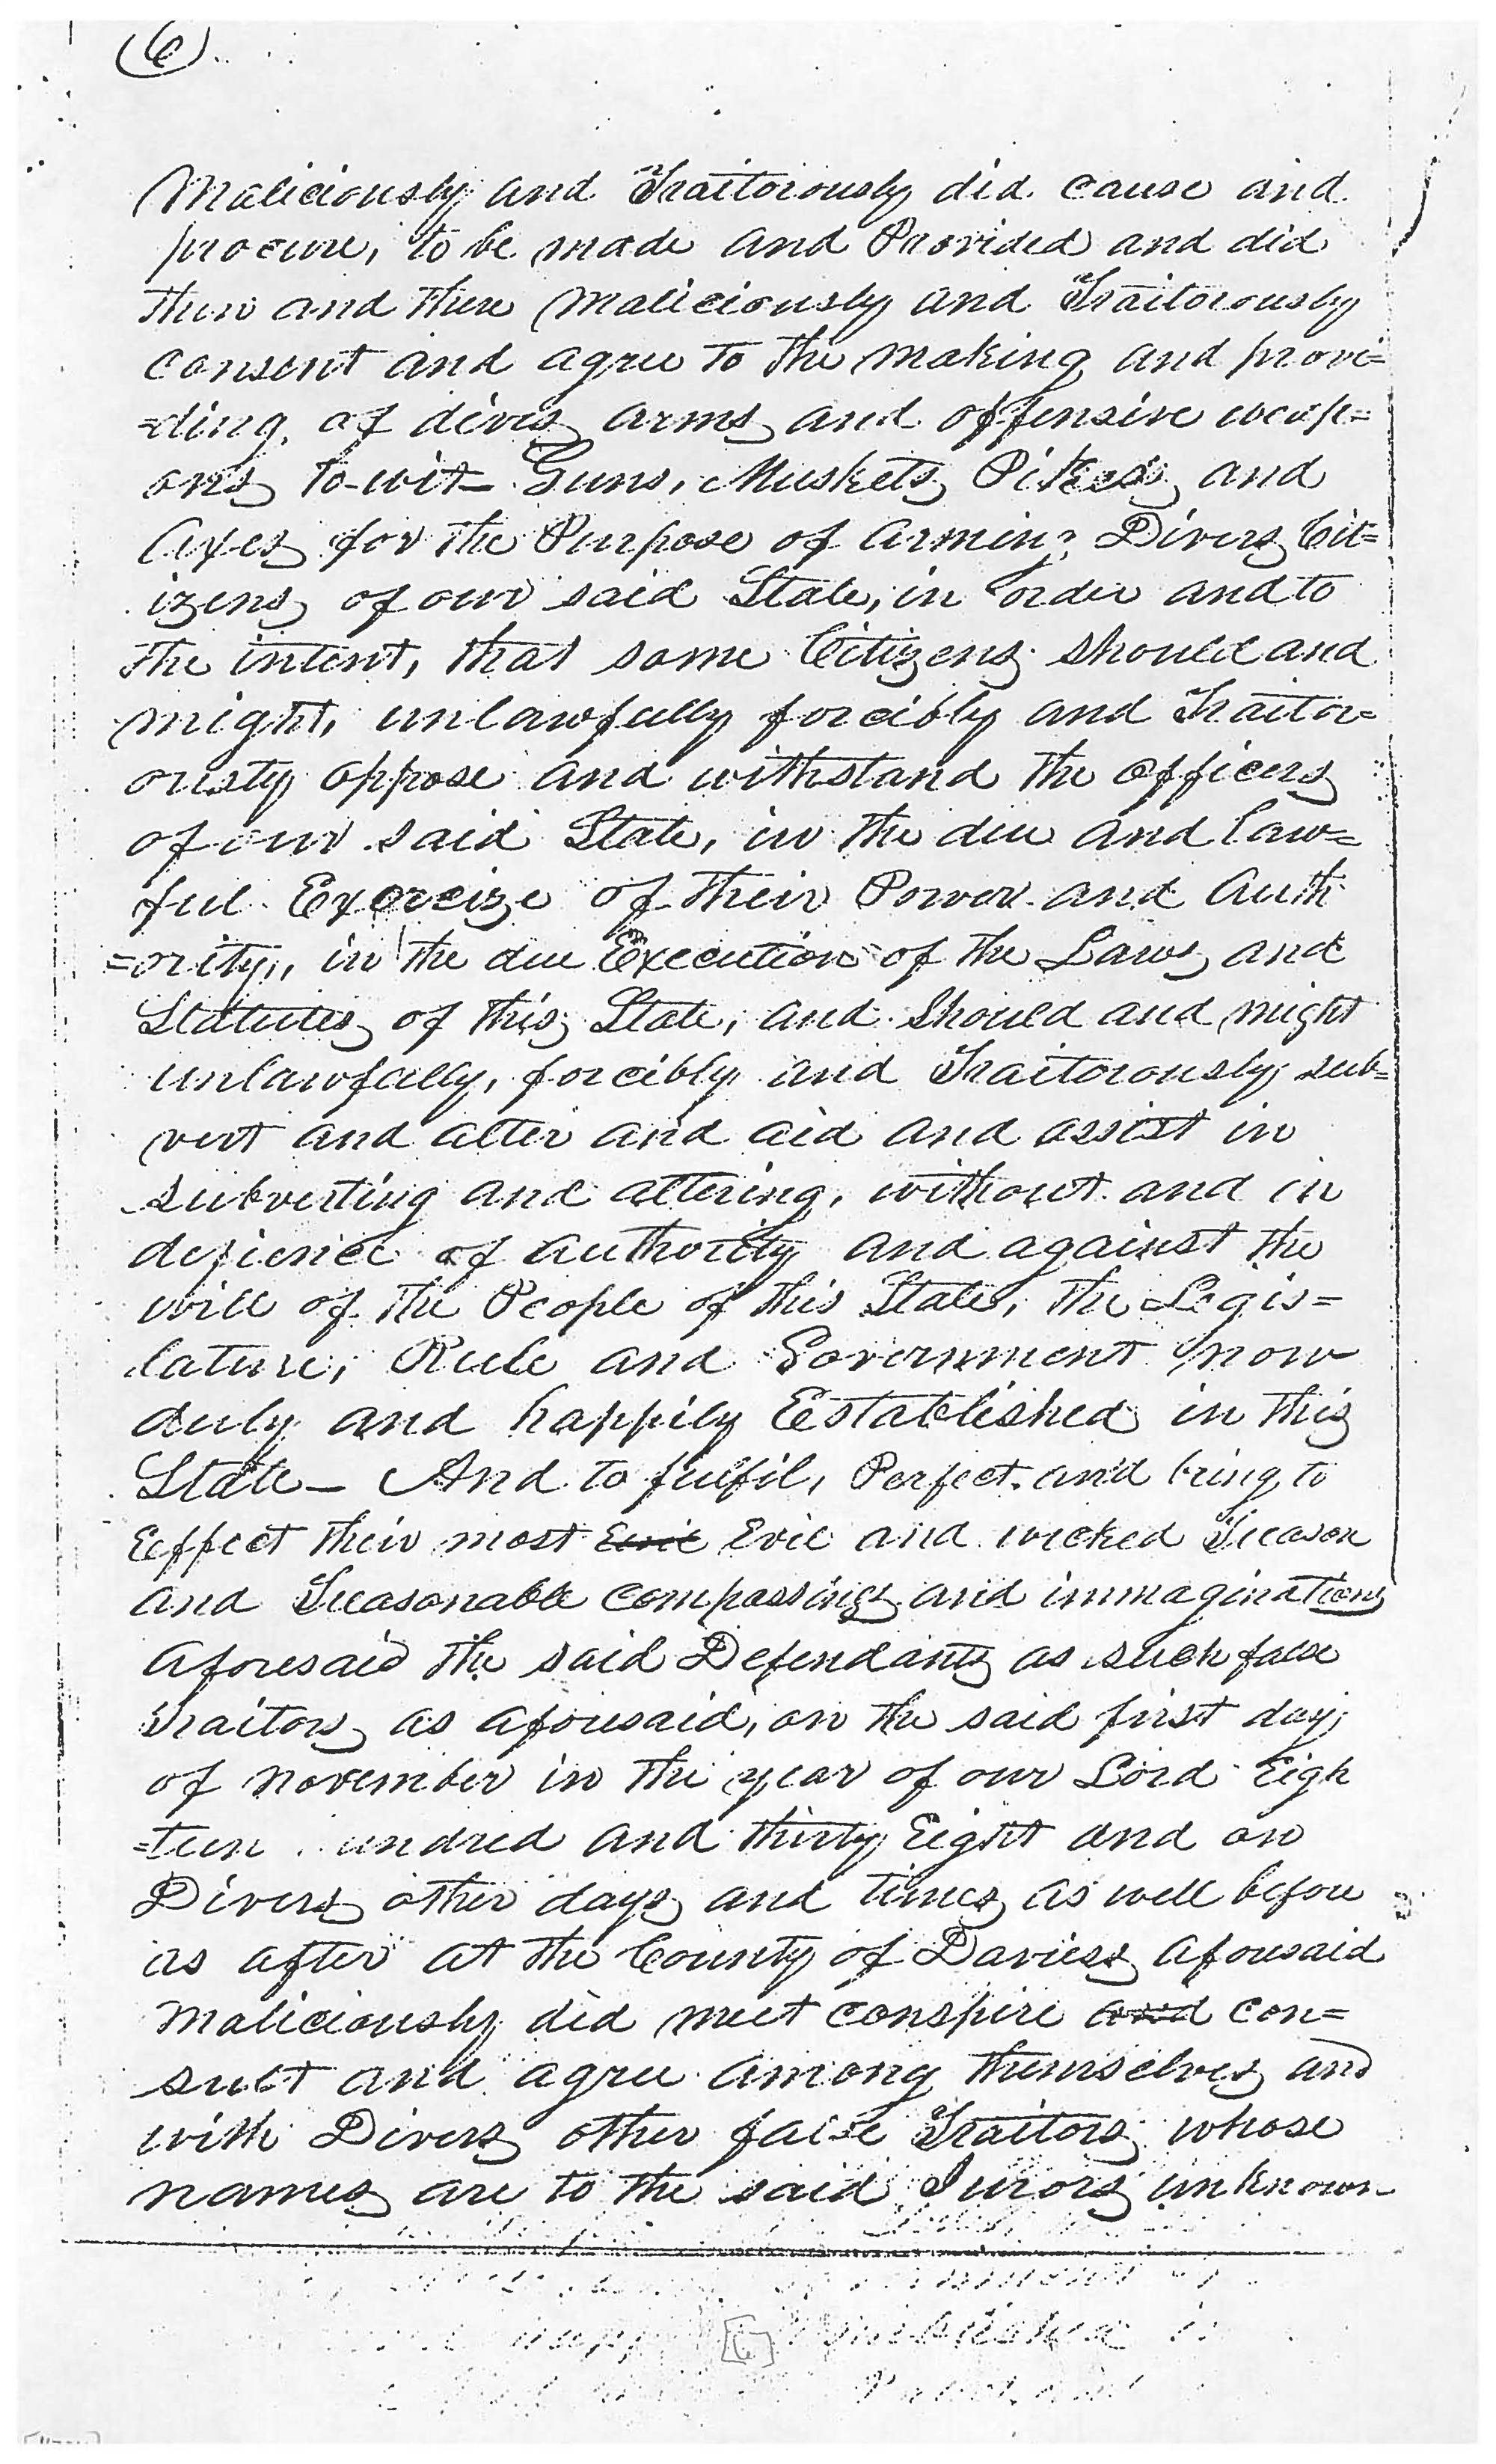 (6)
Maliciously and Traitorously did cause and
procure, to be made and Provided and did
then and there Maliciously and Traitorously
consent and agree to the making and provi=
=ding, of divers arms and offensive weap=
ons to-wit– Guns, Muskets, Pikes, and
Axes for the Purpose of arming Divers Cit=
izens of our said State, in order and to
the intent, that same Citizens should and
might, unlawfully forcibly and Traitor=
ously oppose and withstand the officers
of our said State, in the due and law=
ful Exercize of their Power and Auth
=ority, in the due Execution of the Laws and
Statutes of this State, and should and might
unlawfully, forcibly and Traitorously sub=
vert and alter and aid and assist in
subverting and altering, without and in
defience of authority and against the
will of the People of this State, the Legis=
lature, Rule and Government now
duly and happily Established in this
State – And to fulfil, Perfect and bring to
Eeffect their most Evil Evil and wicked Treason
and Treasonable compassings and immaginations
aforesaid the said Defendants as such false
Traitors as aforesaid, on the said first day
of November in the year of our Lord Eigh
=teen undred and thirty Eight and on
Divers other days and times as well before
as after at the County of Daviess aforesaid
Maliciously did meet conspire and con=
sult and agree among themselves and
with Divers other false Traitors whose
names are to the said Jurors unknown
[6]